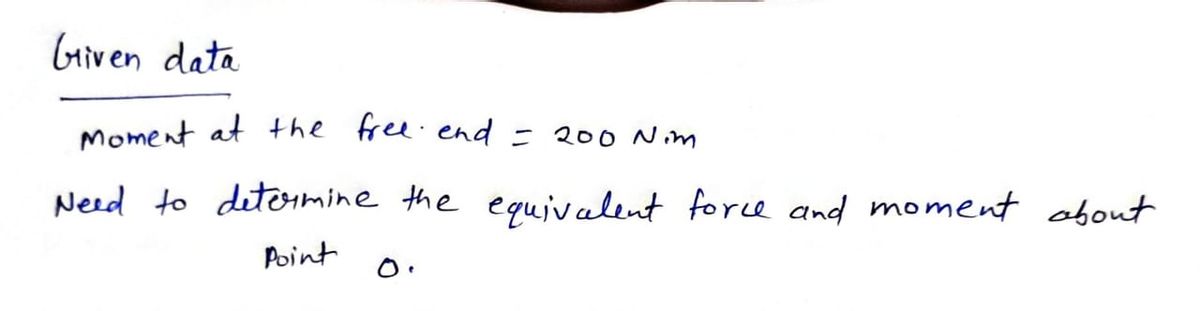 Given data
Moment at the free end = 200 N.m
Need to determine the equivalent force and moment about
Point O.